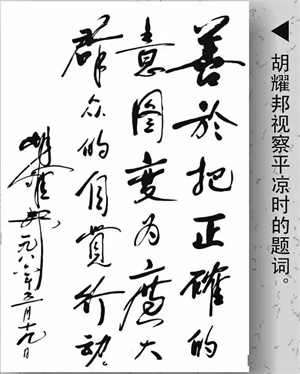 胡耀邦视察平凉时的题词。
善於把正確的
意图变为廣大
群众的自覺行动
胡耀邦一九八年月十九日